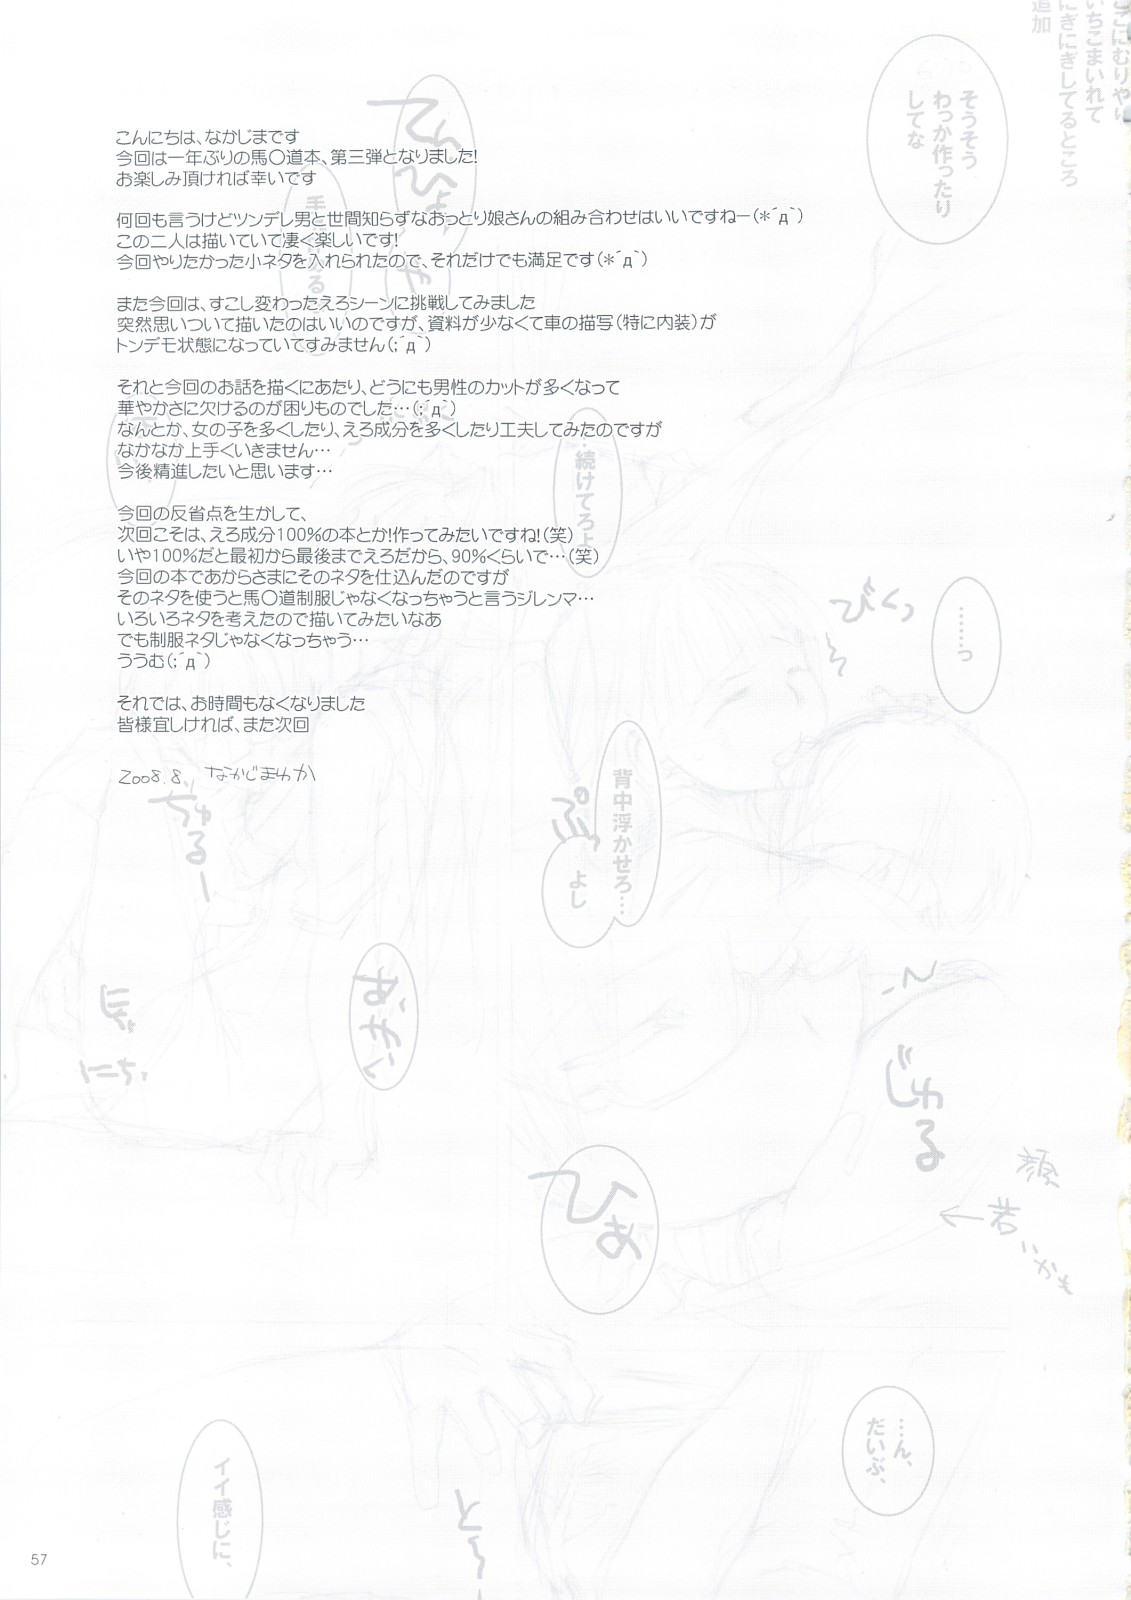 こんにちは、なかじまです
今回は一年ぶりの馬〇道本、第三弾となりました!
お楽しみ頂ければ幸いです
何回も言うけどツンデレ男と世間知らずなおっとり娘さんの組み合わせはいいですねー(＊´д`)
この二人は描いていて凄く楽しいです!
今回やりたかった小ネタを入れられたので、それだけでも満足です(＊´д`)
また今回は、すこし変わったえろシーンに挑戦してみました
突然思いついて描いたのはいいのですが、資料が少なくて車の描写(特に内装)が
トンデモ状態になっていてすみません(;´д`)
それと今回のお話を描くにあたり、どうにも男性のカットが多くなって
華やかさに欠けるのが困りものでした…(;´д`)
なんとか、女の子を多くしたり、えろ成分を多くしたり工夫してみたのですが
なかなか上手くいきません…
今後精進したいと思います…
今回の反省点を生かして、
次回こそは、えろ成分100%の本とか!作ってみたいですね!(笑)
いや100%だと最初から最後までえろだから、90%くらいで…(笑)
今回の本であからさまにそのネタを仕込んだのですが
そのネタを使うと馬〇道制服じゃなくなっちゃうと言うジレンマ…
いろいろネタを考えたので描いてみたいなあ
でも制服ネタじゃなくなっちゃう…
ううむ(;´д`)
それでは、お時間もなくなりました
皆様宜しければ、また次回
2008.8. なかじまゆか
ここにむりやり
いちこまいれて
にぎにぎしてるところ
追加
そうそう
わっか作ったり
してな
…続けてろよ
びくっ
……っ
背中浮かせろ…
よし
ぷっ
ちゅるー
にちっ
じゅる
ひぁ
顔
若
いかも
←
…ん、
だいぶ、
イイ感じに、
57